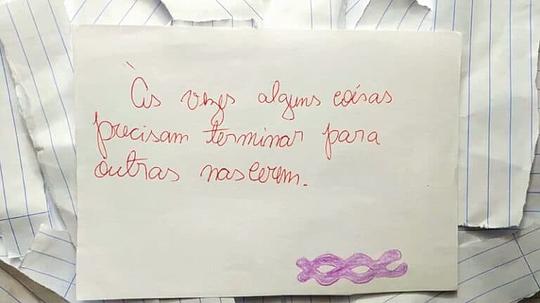 Às vezes alguns coisas
precisam terminar para
outras nascerem.